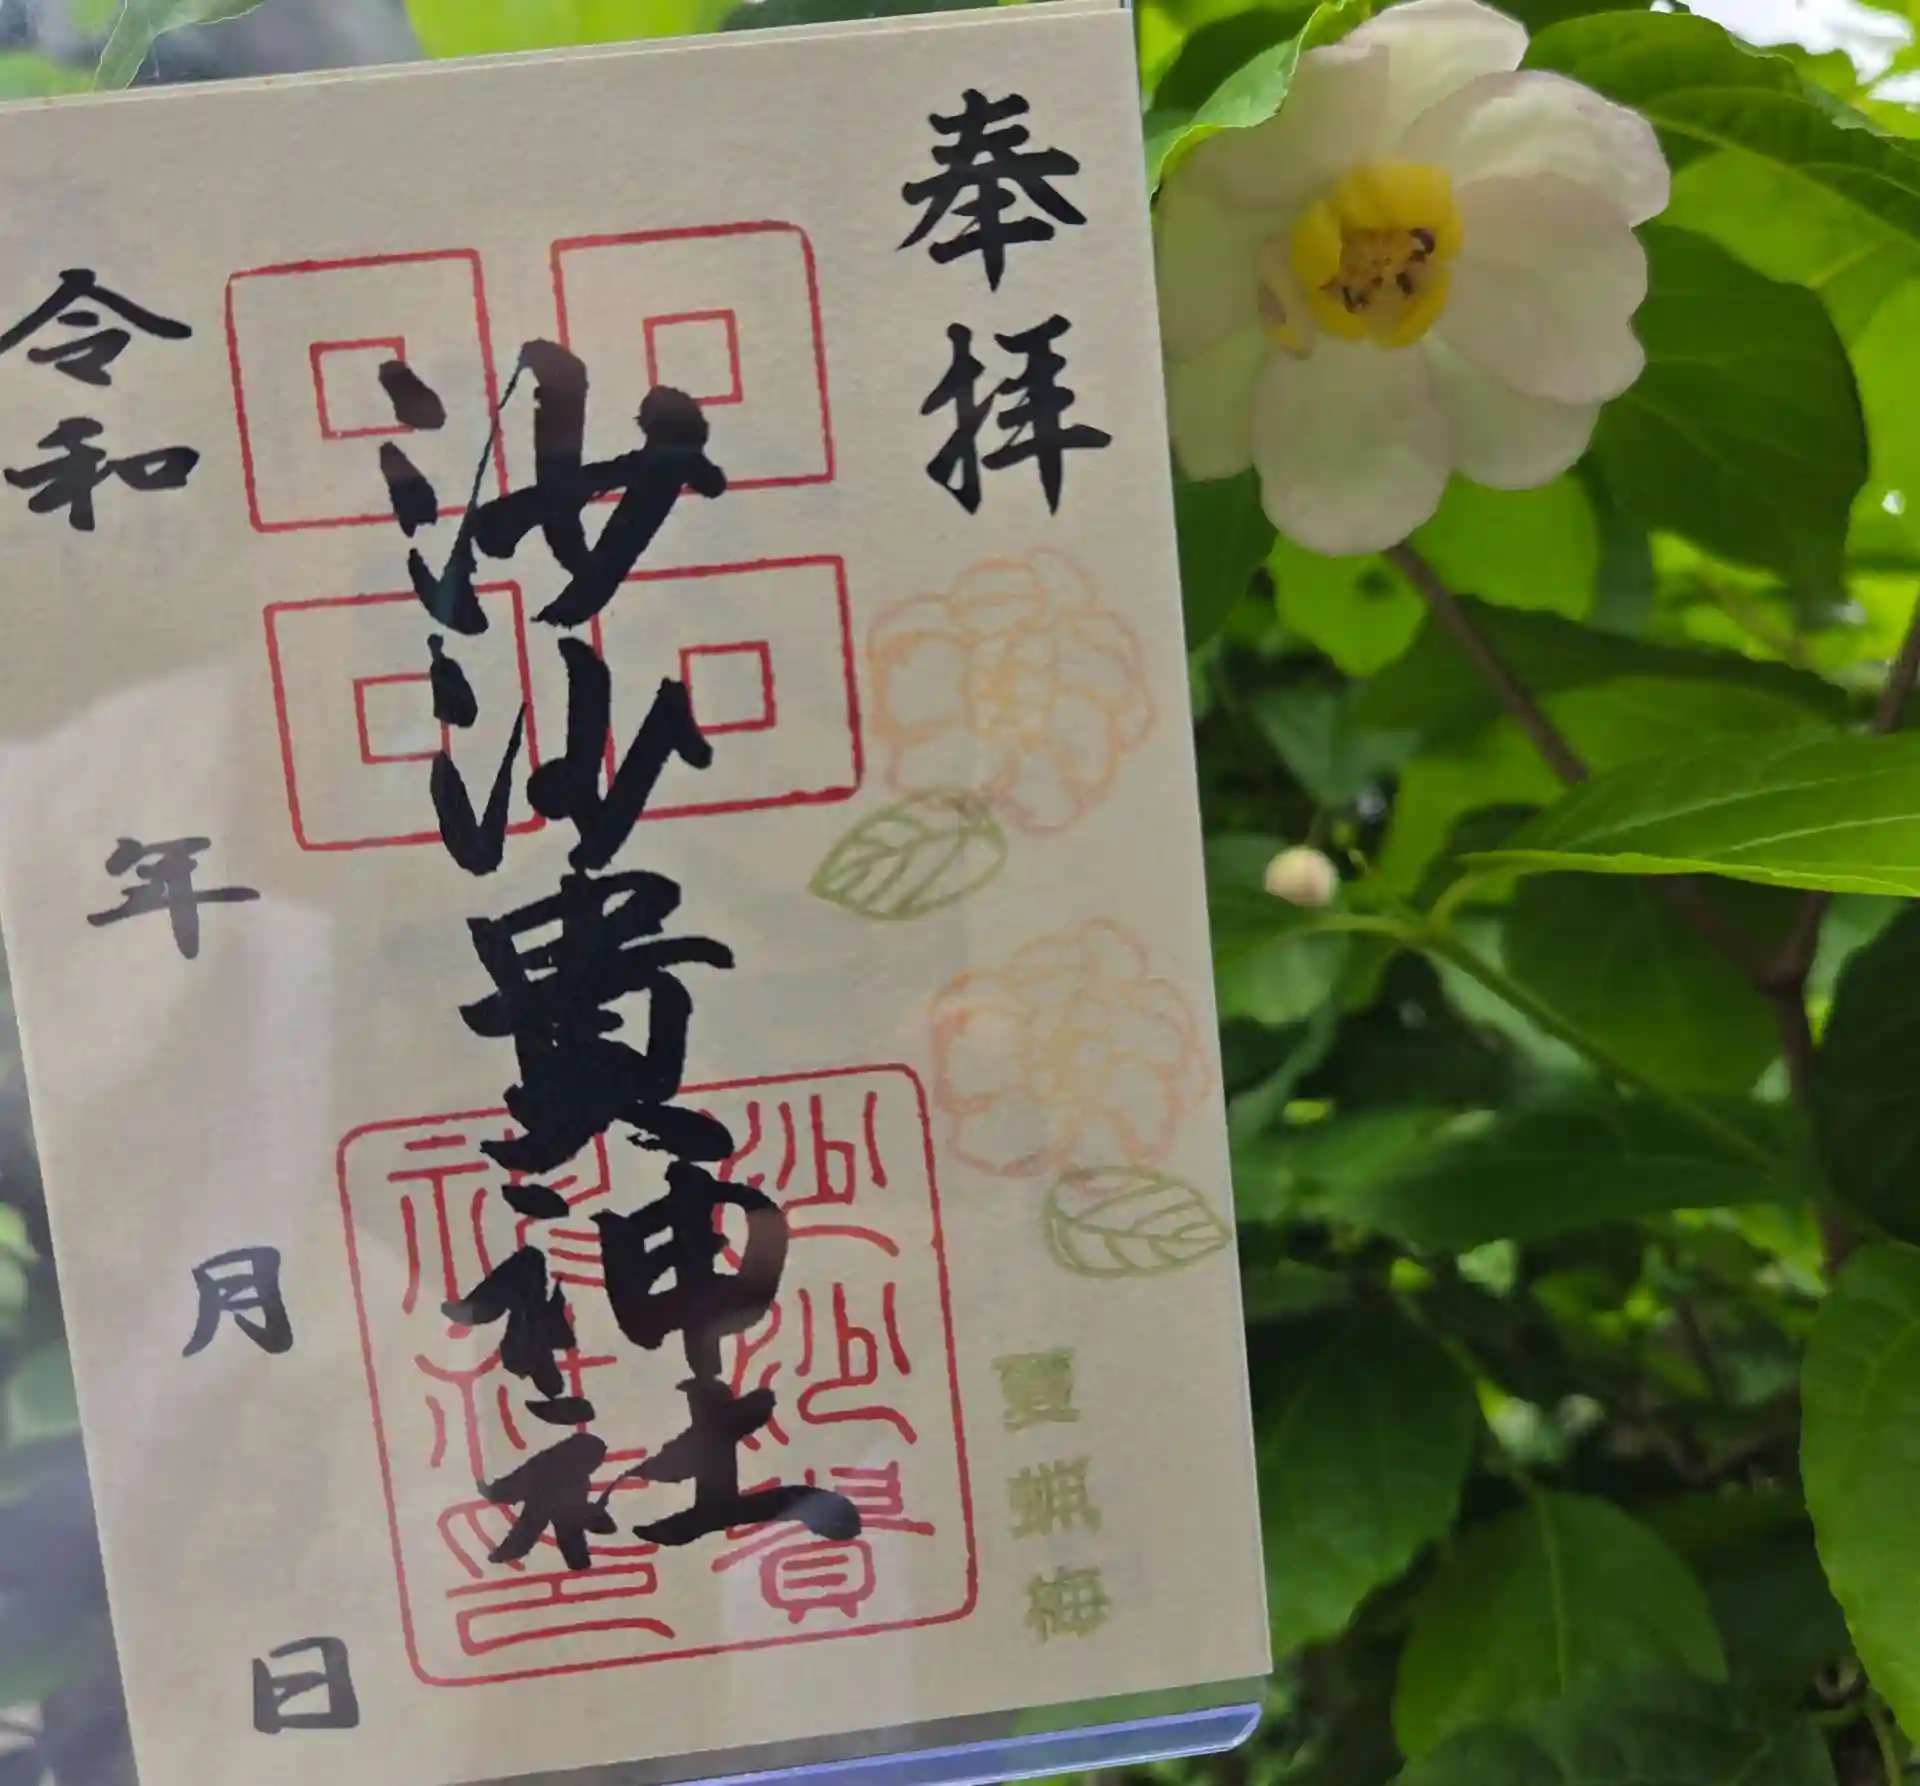 奉拝
夏蝋梅
沙沙貴神社
沙沙貴
神社印
令和 年 月 日